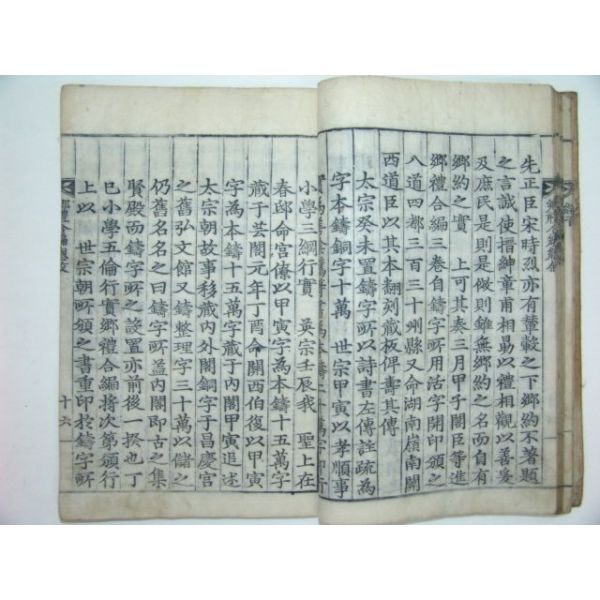 先正臣宋時烈亦有輦轂之下鄉約不著題
之言誠使搢紳章甫相勗以禮相觀以善爰
及庶民是則是倣則雖無鄉約之名而自有
鄉約之實 上可其奏三月甲子閣臣等進
鄉禮合編三卷自鑄字所用活字開印頒之
八道四都三百三十州縣又命湖南嶺南關
西道臣以其本翻刻藏板俾壽其傳
太宗癸未置鑄字所以詩書左傳註疏為
字本鑄銅字十萬 世宗甲寅以孝順事
實
小學三綱行實 英宗壬辰我 聖上在
春邸命宮僚以甲寅字為本鑄十五萬字
藏于芸閣元年丁酉命關西伯復以甲寅
字為本鑄十五萬字藏于內閣甲寅追述
太宗朝故事移藏內外閣銅字于昌慶宮
之舊弘文館又鑄整理字三十萬以儲之
仍舊名名之曰鑄字所蓋內閣即古之集
賢殿而鑄字所之設置亦前後一揆也丁
巳小學五倫行實鄉禮合編將次第頒行
上以 世宗朝所頒之書重印於鑄字所
十六